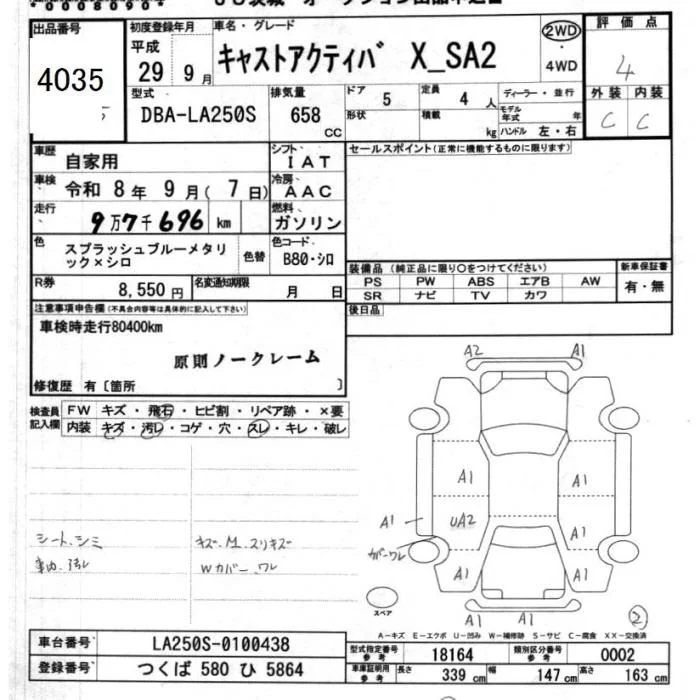 出品番号
4035
初度登録年月
平成
29 9 月
車名・グレード
キャストアクティバ X_SA2
2WD
・
4WD
評価点
4
外装 内装
C C
型式
DBA-LA250S
排気量
658
CC
ドア 5
定員 4 人
形状
積載 kg
ディーラー・並行
モデル年式 年
ハンドル 左・右
車歴 自家用
シフト IAT
車検 令和 8 年 9 月( 7 日)
冷房 AAC
走行 9万7千696 km
燃料 ガソリン
色 スプラッシュブルーメタリック×シロ
色替
色コード
B80・シロ
R券 8,550円
名変通知期限 月 日
セールスポイント(正常に機能するものに限ります)
装備品(純正品に限り○をつけてください)
PS PW ABS エアB AW
SR ナビ TV カワ
新車保証書
有・無
後日品
注意事項申告欄(不具合内容等は具体的に記入して下さい)
車検時走行80400km
原則ノークレーム
修復歴 有〔箇所 〕
検査員記入欄
FW キズ・飛石・ヒビ割・リペア跡・×要
内装 キズ・汚レ・コゲ・穴・スレ・キレ・破レ
シート、シミ
キズ、M、スリキズ
Wカバー、ワレ
A2 A1
A1 A1
A1 UA2 A1
カバーワレ
A1 A1
A1
スペア
2
A-キズ E-エクボ U-凹み W-補修跡 S-サビ C-腐食 XX-交換済
車台番号 LA250S-0100438
登録番号 つくば 580 ひ 5864
型式指定番号 参考 18164
類別区分番号 参考 0002
車庫証明用 参考 長さ 339 cm 幅 147 cm 高さ 163 cm